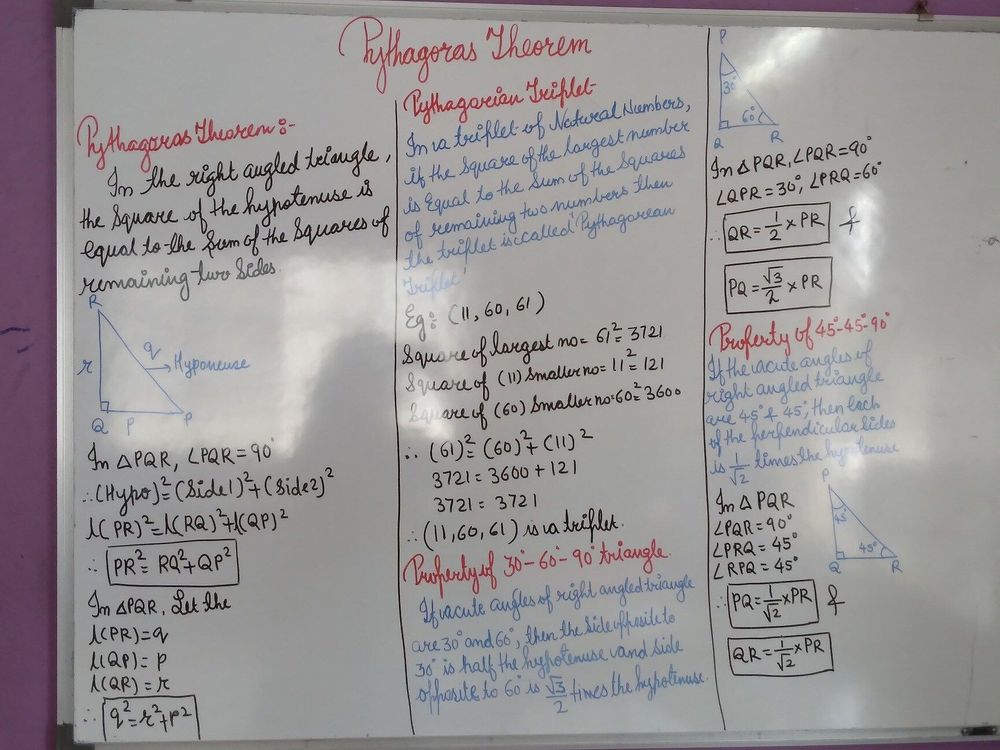 Pythagoras Theorem
Pythagoras Theorem:-
In the right angled triangle,
the Square of the hypotenuse is
equal to the Sum of the Squares of
remaining two Sides.
R
r
q → Hyponeuse
Q p P
In △PQR, ∠PQR = 90°
∴ (Hypo)² = (Side1)² + (Side2)²
l(PR)² = l(RQ)² + l(QP)²
∴ PR² = RQ² + QP²
In △PQR, Let the
l(PR) = q
l(QP) = p
l(QR) = r
∴ q² = r² + p²
Pythagorian Triplet
In a triplet of Natural Numbers,
if the Square of the largest number
is Equal to the Sum of the Squares
of remaining two numbers then
the triplet is called 'Pythagorean
Triplet'
Eg:- (11, 60, 61)
Square of largest no = 61² = 3721
Square of (11) Smaller no = 11² = 121
Square of (60) Smaller no = 60² = 3600
∴ (61)² = (60)² + (11)²
3721 = 3600 + 121
3721 = 3721
∴ (11, 60, 61) is a triplet.
Property of 30°- 60°- 90° triangle.
If acute angles of right angled triangle
are 30° and 60°, then the side opposite to
30° is half the hypotenuse and side
opposite to 60° is √3/2 times the hypotenuse.
P
30°
60°
Q R
In △PQR, ∠PQR = 90°
∠QPR = 30°, ∠PRQ = 60°
∴ QR = 1/2 × PR &
PQ = √3/2 × PR
Property of 45°-45°-90°
If the acute angles of
right angled triangle
are 45° & 45°, then each
of the perpendicular sides
is 1/√2 times the hypotenuse
P
45°
45°
Q R
In △PQR
∠PQR = 90°
∠PRQ = 45°
∠RPQ = 45°
∴ PQ = 1/√2 × PR &
QR = 1/√2 × PR